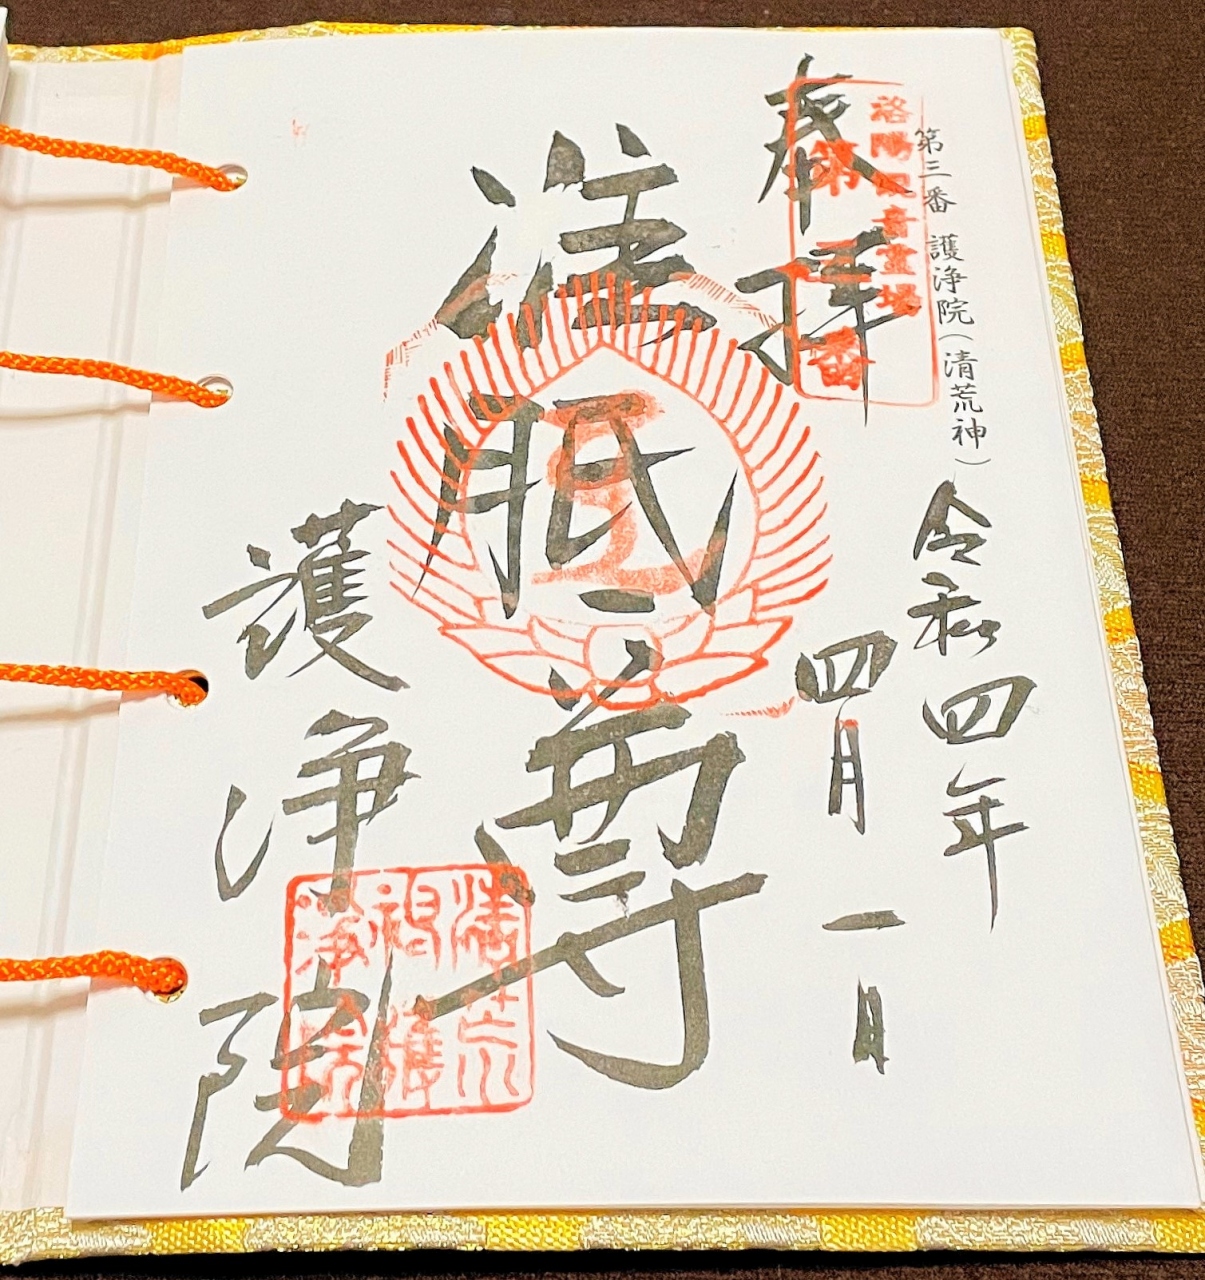 第三番 護浄院(清荒神)
洛陽観音霊場
第三番
奉拝
令和四年
四月一日
准胝尊
護浄院
清荒
神護
浄院